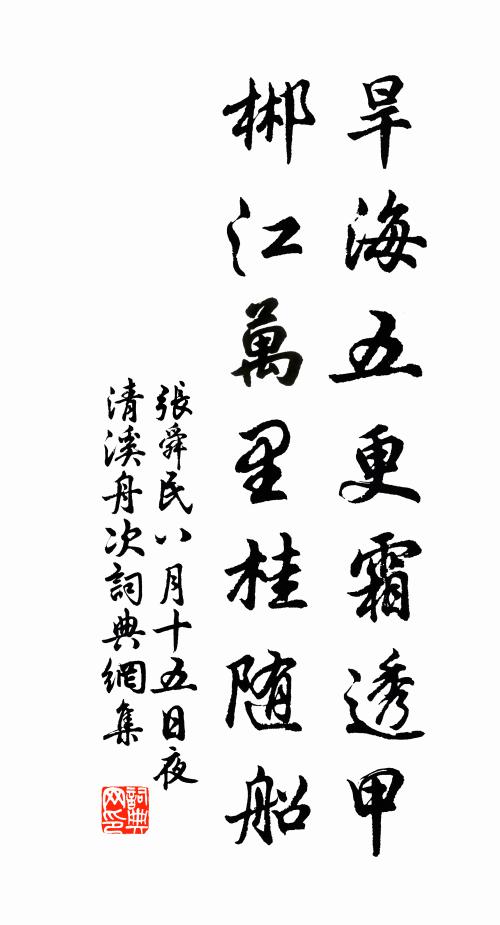 旱海五更霜透甲
郴江萬里桂随船
張舜民八月十五日夜
清溪舟次詞典網集
詞典
网印